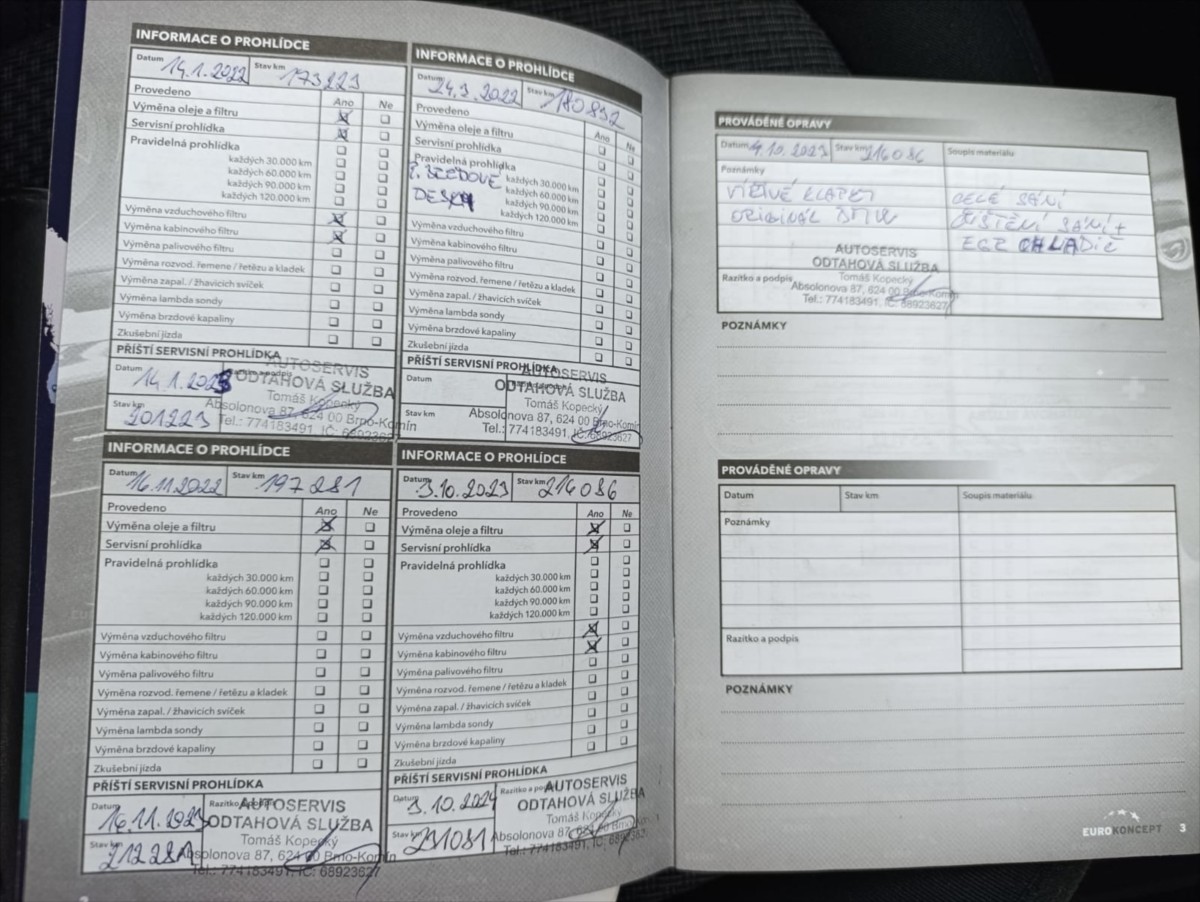 INFORMACE O PROHLÍDCE
Datum 14.1.2022 Stav km 173223
Provedeno Ano Ne
Výměna oleje a filtru
Servisní prohlídka
Pravidelná prohlídka
každých 30.000 km
každých 60.000 km
každých 90.000 km
každých 120.000 km
Výměna vzduchového filtru
Výměna kabinového filtru
Výměna palivového filtru
Výměna rozvod. řemene / řetězu a kladek
Výměna zapal. / žhavicích svíček
Výměna lambda sondy
Výměna brzdové kapaliny
Zkušební jízda
PŘÍŠTÍ SERVISNÍ PROHLÍDKA
Datum 14.1.2023
Stav km 201223
AUTOSERVIS
ODTAHOVÁ SLUŽBA
Tomáš Kopecký
Absolonova 87, 624 00 Brno-Komín
Tel.: 774183491, IČ: 68923627
INFORMACE O PROHLÍDCE
Datum 24.3.2022 Stav km 180832
Provedeno Ano Ne
Výměna oleje a filtru
Servisní prohlídka
Pravidelná prohlídka
každých 30.000 km
každých 60.000 km
každých 90.000 km
každých 120.000 km
DESKY
Výměna vzduchového filtru
Výměna kabinového filtru
Výměna palivového filtru
Výměna rozvod. řemene / řetězu a kladek
Výměna zapal. / žhavicích svíček
Výměna lambda sondy
Výměna brzdové kapaliny
Zkušební jízda
PŘÍŠTÍ SERVISNÍ PROHLÍDKA
Datum
Stav km
AUTOSERVIS
ODTAHOVÁ SLUŽBA
Tomáš Kopecký
Absolonova 87, 624 00 Brno-Komín
Tel.: 774183491, IČ: 68923627
INFORMACE O PROHLÍDCE
Datum 16.11.2022 Stav km 197281
Provedeno Ano Ne
Výměna oleje a filtru
Servisní prohlídka
Pravidelná prohlídka
každých 30.000 km
každých 60.000 km
každých 90.000 km
každých 120.000 km
Výměna vzduchového filtru
Výměna kabinového filtru
Výměna palivového filtru
Výměna rozvod. řemene / řetězu a kladek
Výměna zapal. / žhavicích svíček
Výměna lambda sondy
Výměna brzdové kapaliny
Zkušební jízda
PŘÍŠTÍ SERVISNÍ PROHLÍDKA
Datum 16.11.2023
Stav km 212281
AUTOSERVIS
ODTAHOVÁ SLUŽBA
Tomáš Kopecký
Absolonova 87, 624 00 Brno-Komín
Tel.: 774183491, IČ: 68923627
INFORMACE O PROHLÍDCE
Datum 3.10.2023 Stav km 216086
Provedeno Ano Ne
Výměna oleje a filtru
Servisní prohlídka
Pravidelná prohlídka
každých 30.000 km
každých 60.000 km
každých 90.000 km
každých 120.000 km
Výměna vzduchového filtru
Výměna kabinového filtru
Výměna palivového filtru
Výměna rozvod. řemene / řetězu a kladek
Výměna zapal. / žhavicích svíček
Výměna lambda sondy
Výměna brzdové kapaliny
Zkušební jízda
PŘÍŠTÍ SERVISNÍ PROHLÍDKA
Datum 3.10.2024 Razítko a podpis
Stav km 231081
AUTOSERVIS
ODTAHOVÁ SLUŽBA
Tomáš Kopecký
Absolonova 87, 624 00 Brno-Komín
Tel.: 774183491, IČ: 68923627
PROVÁDĚNÉ OPRAVY
Datum 4.10.2023 Stav km 216086 Soupis materiálu
Poznámky
VÍŘIVÉ KLAPKY CELÉ SÁNÍ
ORIGINÁL BMW ČIŠTĚNÍ SÁNÍ +
EGR CHLADIČ
AUTOSERVIS
ODTAHOVÁ SLUŽBA
Razítko a podpis Tomáš Kopecký
Absolonova 87, 624 00 Brno-Komín
Tel.: 774183491, IČ: 68923627
POZNÁMKY
PROVÁDĚNÉ OPRAVY
Datum Stav km Soupis materiálu
Poznámky
Razítko a podpis
POZNÁMKY
EUROKONCEPT 3